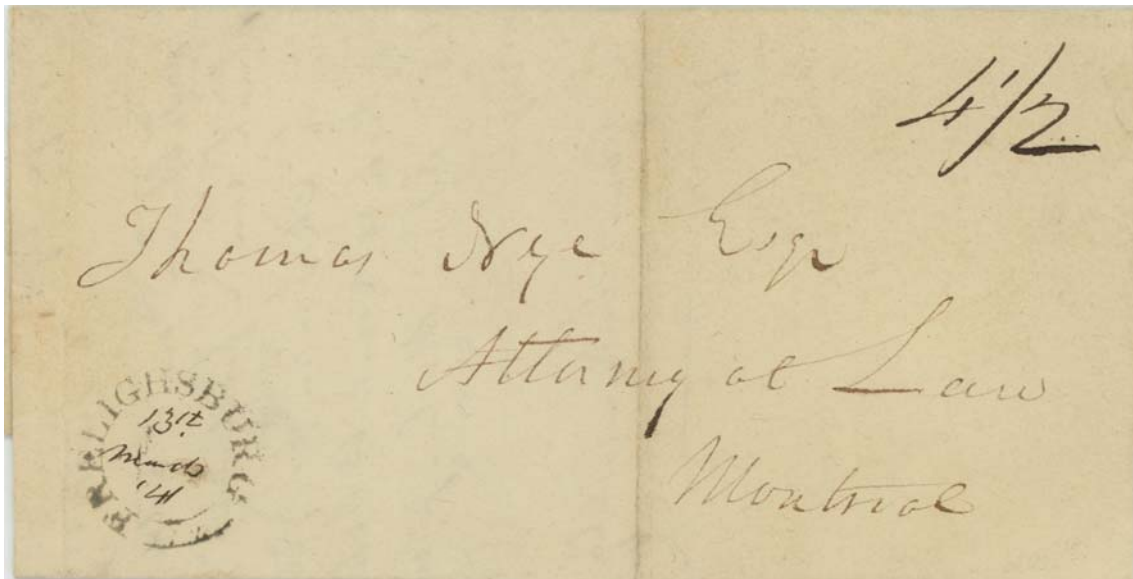 4 1/2
Thomas Nye Esqr
Attorney at Law
Montreal
FRELIGHSBURG
13th
March
'41